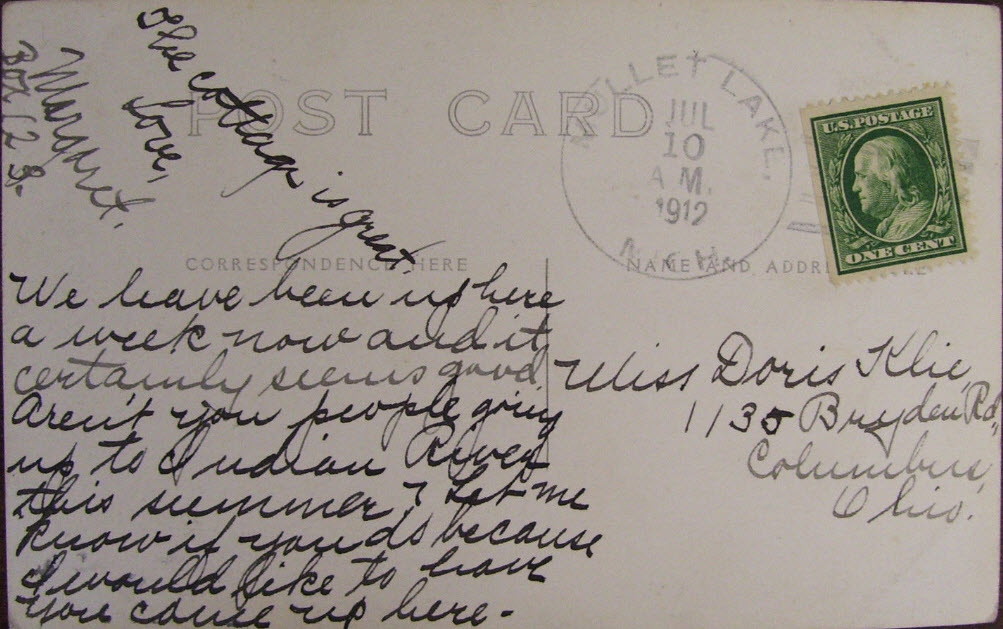 POST CARD
MULLET LAKE,
JUL
10
A M.
1912
MICH.
U.S.POSTAGE
ONE CENT
CORRESPONDENCE HERE
NAME AND ADDRE
We have been up here
a week now and it
certainly seems good.
Aren't you people going
up to Indian River
this summer? Let me
know if you do because
I would like to have
you come up here -
The cottage is great.
Love,
Margaret.
Box 123.
Miss Doris Klie,
1135 Bryden Rd.,
Columbus,
Ohio.